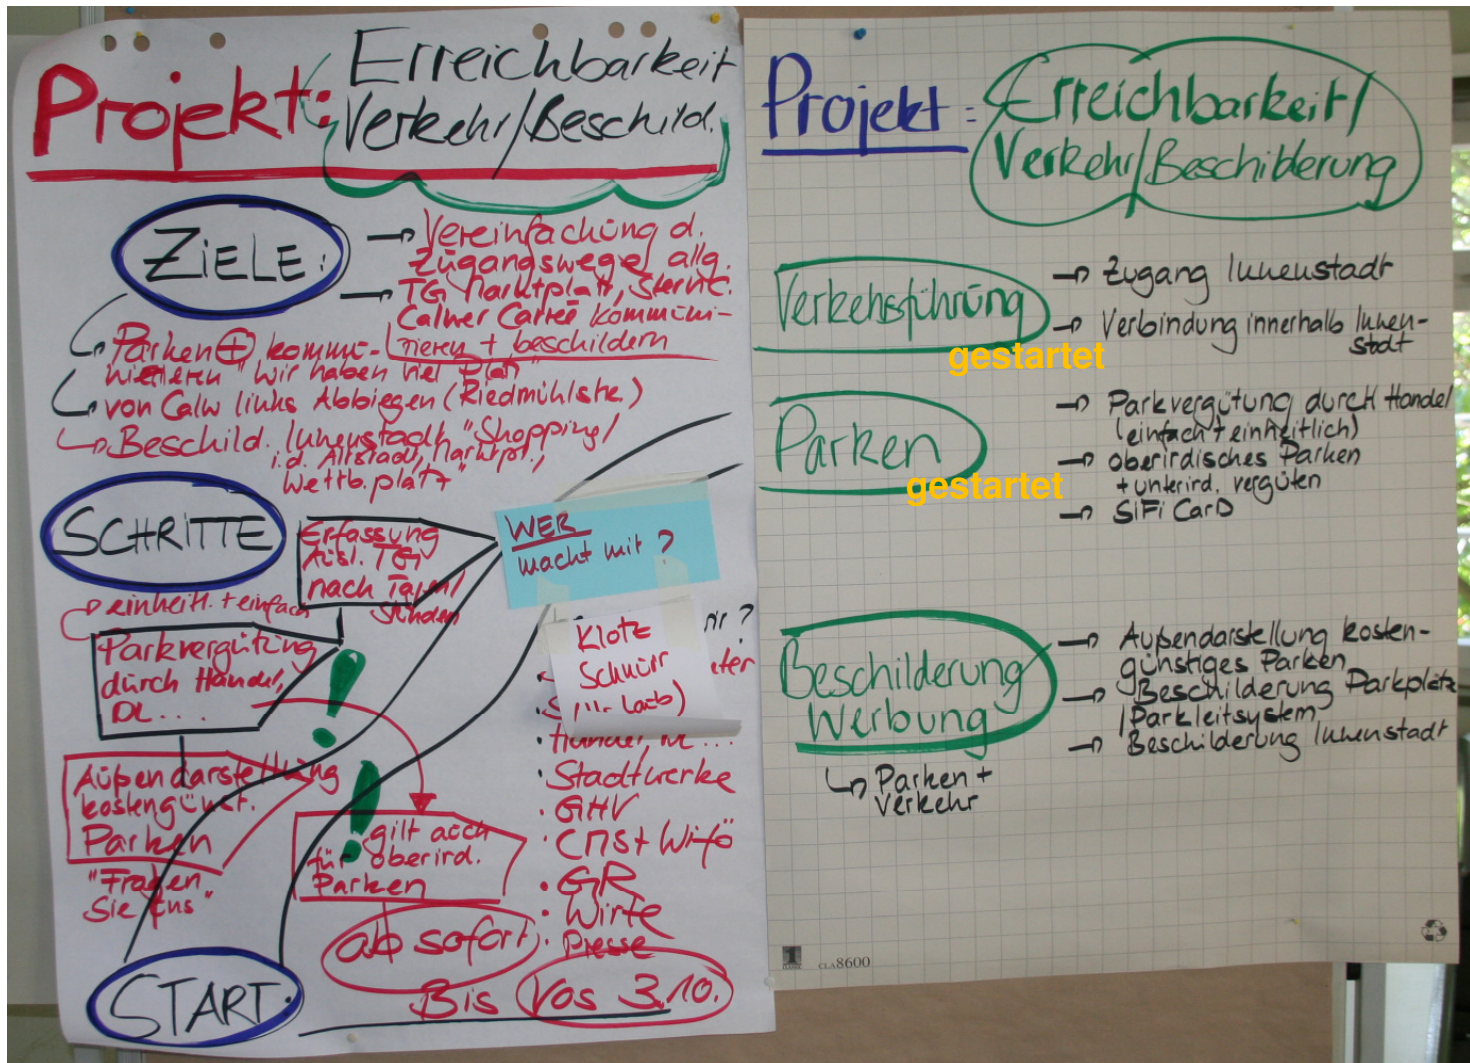 Projekt:
Erreichbarkeit
Verkehr/Beschild.
ZIELE:
Vereinfachung d.
Zugangswege allg.
TG Marktplatz,
Calwer Carrée kommuni-
zieren + beschildern
Parken ⊕ kommu-
nizieren "wir haben viel Platz"
von Calw links Abbiegen (Riedmühlstr.)
Beschild. Innenstadt "Shopping/
i.d. Altstadt, Marktpl.,
Wettb.platz"
SCHRITTE
Erfassung
Ausl. TG
nach Tagen/
Stunden
WER
macht mit?
einheitl. + einfach
Parkvergütung
durch Handel,
DL....
Klotz
Schnürr
ir?
eter
Händler, DL...
· Stadtwerke
· GHV
· CMSt Wifö
· GR
· Wirte
· Presse
Außendarstellung
kostengünst.
Parken
"Fragen
Sie uns"
gilt auch
für oberird.
Parken
ab sofort
Bis Vos 3.10.
START:
Projekt:
Erreichbarkeit/
Verkehr/Beschilderung
Verkehsführung
gestartet
Zugang Innenstadt
Verbindung innerhalb Innen-
stadt
Parken
gestartet
Parkvergütung durch Handel
(einfach + einheitlich)
oberirdisches Parken
+ unterird. vergüten
SiFi CarD
Beschilderung
Werbung
Parken +
Verkehr
Außendarstellung kosten-
günstiges Parken
Beschilderung Parkplätze
/Parkleitsystem
Beschilderung Innenstadt
CLASSIC
CLA8600